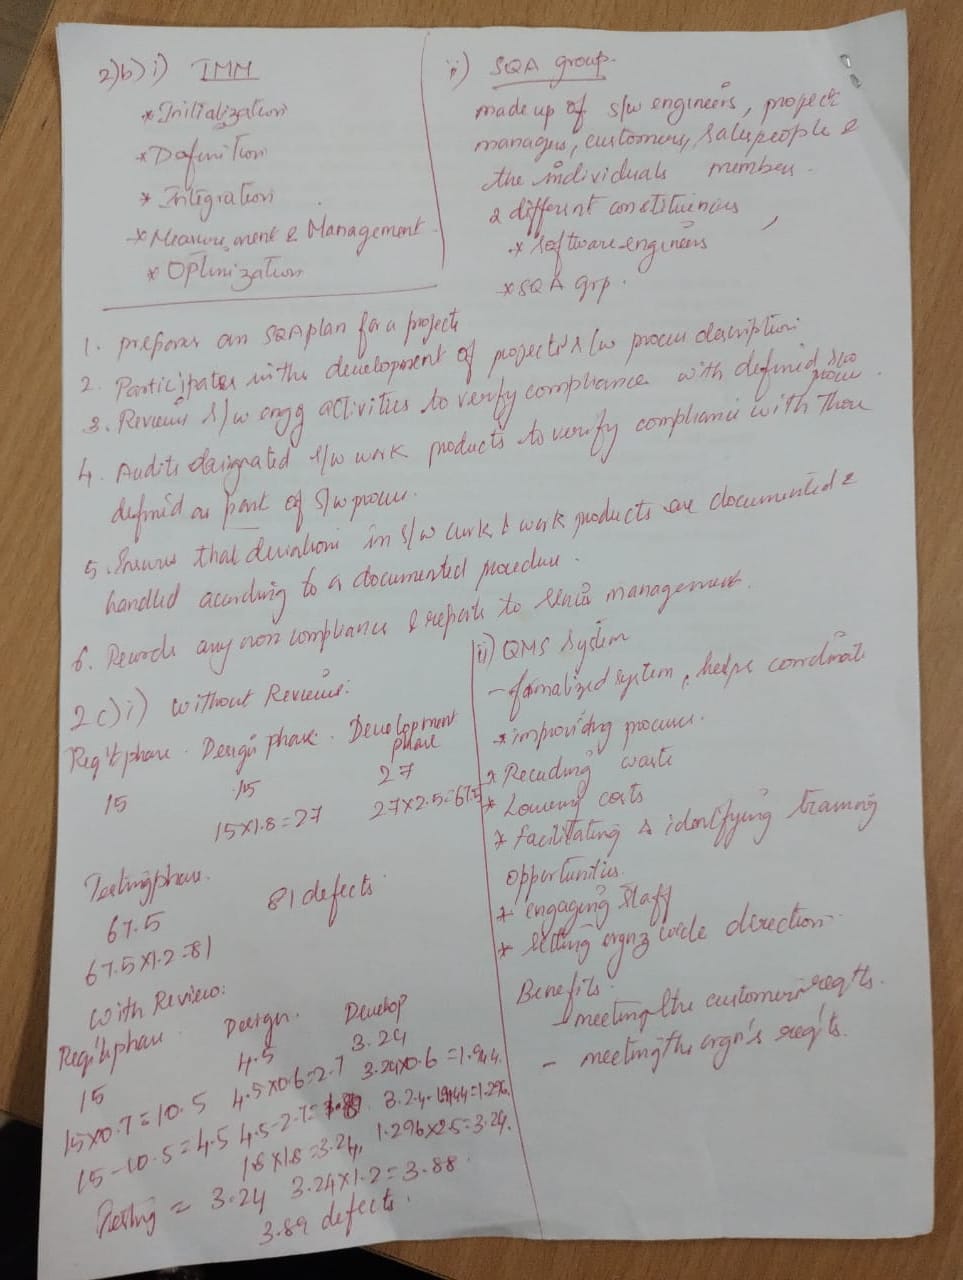 2)b) i) TMM
* Initialization
* Definition
* Integration
* Measurement & Management
* Optimization
ii) SQA group.
made up of s/w engineers, project
managers, customers, salespeople &
the individuals members.
2 different constituencies
* software engineers
* SQA grp.
1. prepares an SQA plan for a project
2. Participates in the development of project's s/w process description.
3. Reviews s/w engg activities to verify compliance with defined s/w process.
4. Audits designated s/w work products to verify compliance with those
defined as part of s/w process.
5. Ensures that deviations in s/w work & work products are documented &
handled according to a documented procedure.
6. Records any non compliance & reports to senior management.
2c) i) Without Reviews:
Req't phase. Design phase. Development phase
15 15 27
15x1.8=27 27x2.5=67.5
Testing phase.
67.5 81 defects
67.5x1.2=81
With Review:
Req't phase Design. Develop
15 4.5 3.24
15x0.7=10.5 4.5x0.6=2.7 3.24x0.6=1.944.
15-10.5=4.5 4.5-2.7= 3.24-1.944=1.296.
1.8x1.8=3.24, 1.296x2.5=3.24.
Testing = 3.24 3.24x1.2=3.88.
3.89 defects.
ii) QMS System
- formalized system, helps coordinate
* improving process.
* Recuding waste
* Lowering costs
* facilitating & identifying training
opportunities.
* engaging staff
* setting orgnz wide direction
Benefits.
- meeting the customers reqts.
- meeting the orgn's reqts.